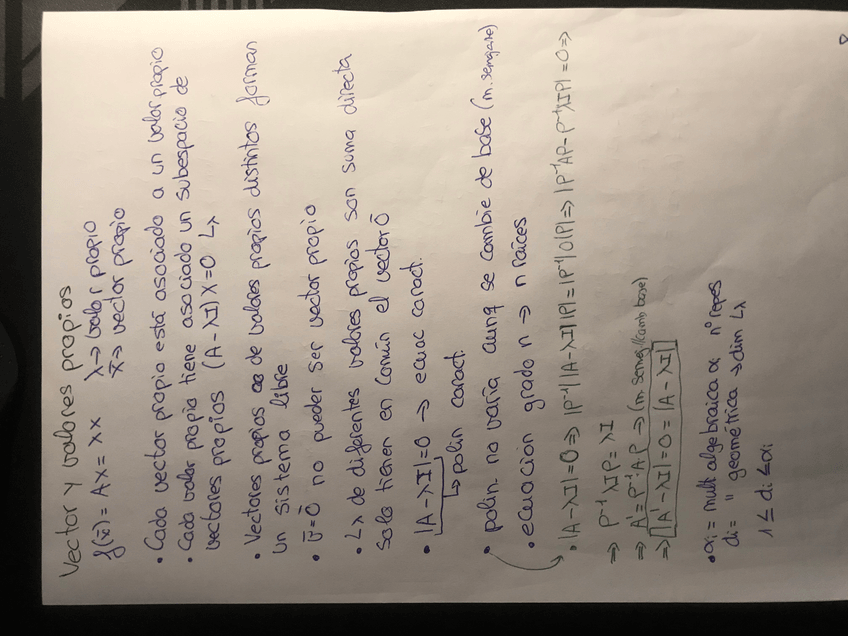 Vector y valores propios
f(x̄) = AX = λX λ → valor propio
x̄ → vector propio
• Cada vector propio está asociado a un valor propio
• Cada valor propio tiene asociado un subespacio de
vectores propios (A - λI)X = 0 Lλ
• Vectores propios de valores propios distintos forman
un sistema libre
• ῡ = ō no pueder ser vector propio
• Lλ de diferentes valores propios son suma directa
solo tienen en común el vector ō
• |A - λI| = 0 → ecuac caract.
↳ polin caract.
• polin no varia aunq se cambie de base (m. semejante)
• ecuacion grado n → n raices
• |A - λI| = 0 ⇒ |P⁻¹| |A - λI| |P| = |P⁻¹| 0 |P| ⇒ |P⁻¹AP - P⁻¹λIP| = 0 ⇒
⇒ P⁻¹λIP = λI
⇒ A' = P⁻¹AP → (m. semej/camb base)
⇒ |A' - λI| = 0 = |A - λI|
• αi = mult algebraica αi nº repes
di = " geométrica → dim Lλ
1 ≤ di ≤ αi